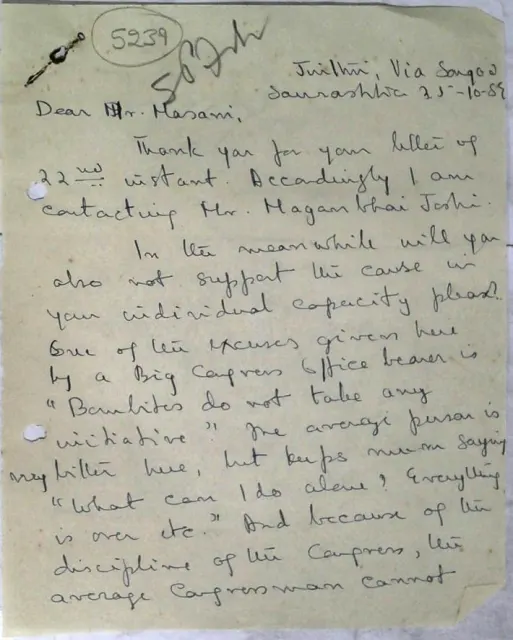 5239
Via Songad
Saurashtra 25-10-5
Dear Mr. Masani,
Thank you for your letter of
22nd instant. Accordingly I am
contacting Mr. Maganbhai Joshi.
In the meanwhile will you
also not support the cause in
your individual capacity please?
One of the excuses given here
by a Big Congress Office bearer is
"Bombites do not take any
initiative". The average person is
very bitter here, but keeps mum saying
"What can I do alone? Everything
is over etc." And because of the
discipline of the Congress, the
average Congressman cannot